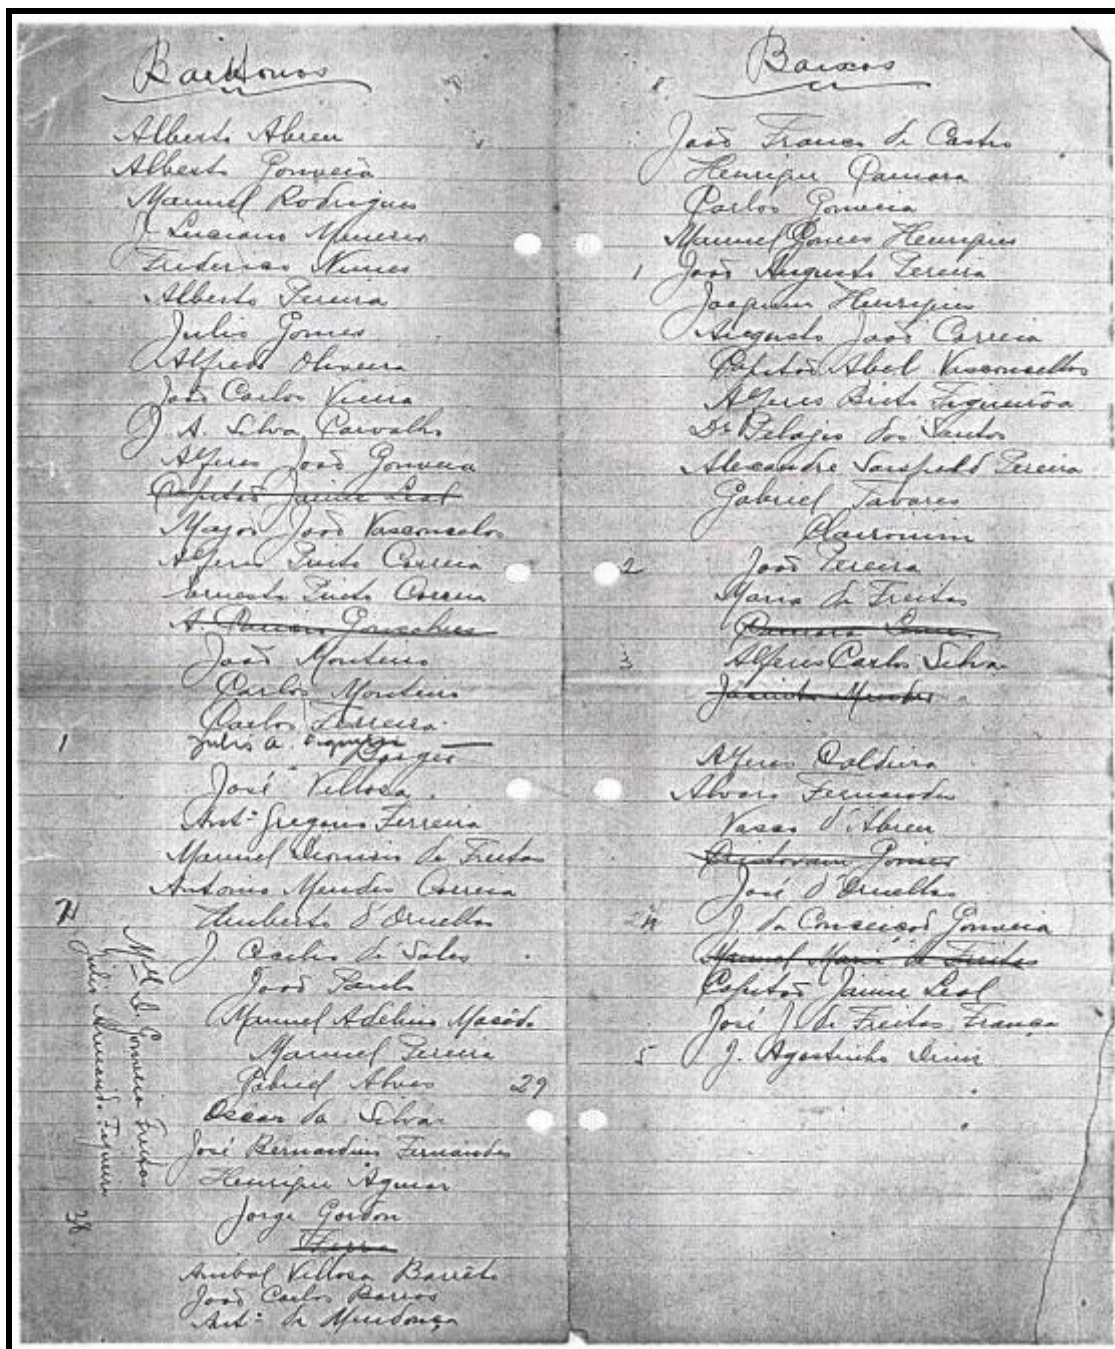 Barítonos
Alberto Abreu
Alberto Gouveia
Manuel Rodrigues
J. Luciano
Frederico Nunes
Alberto Pereira
Julio Gomes
Alfredo Oliveira
João Carlos Vieira
J. A. Silva Carvalho
Alferes João Gouveia
Capitão Jaime Leal
Major João Vasconcelos
Alferes Pinto Correia
Ernesto Pinto Correia
A. Gonçalves
João Monteiro
Carlos Monteiro
Carlos Ferreira
1 Julio A. Figueira
Borges
José Villosa
Antº Gregorio Ferreira
Manuel Dionisio de Freitas
Antonio Mendes Correia
Humberto d'Ornellas
J. Cecilio de Sales
João Paulo
Manuel Adelino
Manuel Pereira
Gabriel Alves 29
Oscar da Silva
José Bernardino Fernandes
Henrique Aguiar
Jorge Gordon
Anibal Villosa Barrêto
João Carlos Barros
Antº de Mendonça
Mel S. Gouveia Freitas
Julio Armando Figueira
38
Baixos
João Franco de Castro
Henrique Camara
Carlos Gouveia
Manuel Gomes Henriques
1 João Augusto Pereira
Joaquim Henriques
Augusto João Correia
Capitão Abel Vasconcellos
Alferes Brito Figueirôa
Dr Pelagio dos Santos
Alexandre Pereira
Gabriel Tavares
2 João Pereira
Maria de Freitas
Camara
3 Alferes Carlos Silva
Jacinto Mendes
Alferes Caldeira
Alvaro Fernandes
Vasco d'Abreu
Cristovam Gomes
José d'Ornellas
J. da Conceição Gouveia
Manuel Maria de Freitas
Capitão Jaime Leal
José J. de Freitas França
5 J. Agostinho Diniz